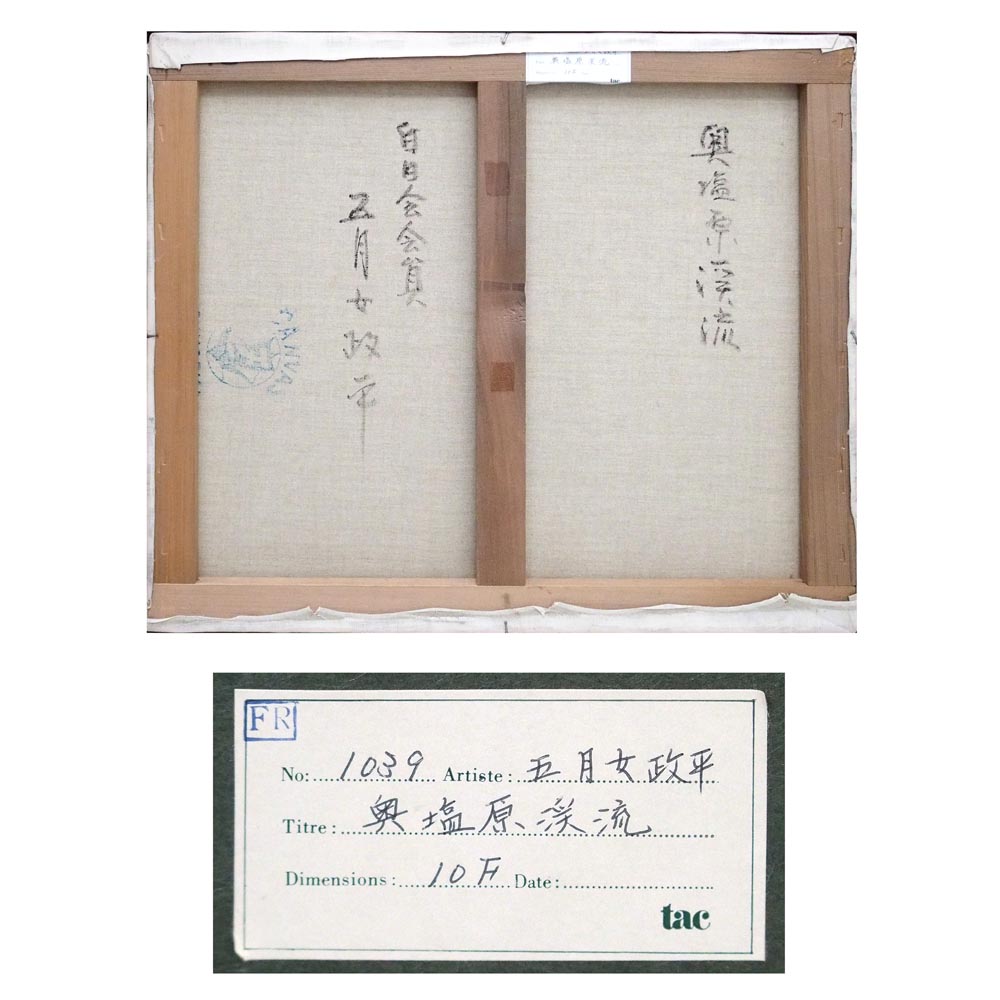 奥塩原渓流
tac
奥塩原渓流
白日会会員
五月女政平
CANVAS
FR
No: 1039 Artiste: 五月女政平
Titre: 奥塩原渓流
Dimensions: 10F Date:
tac